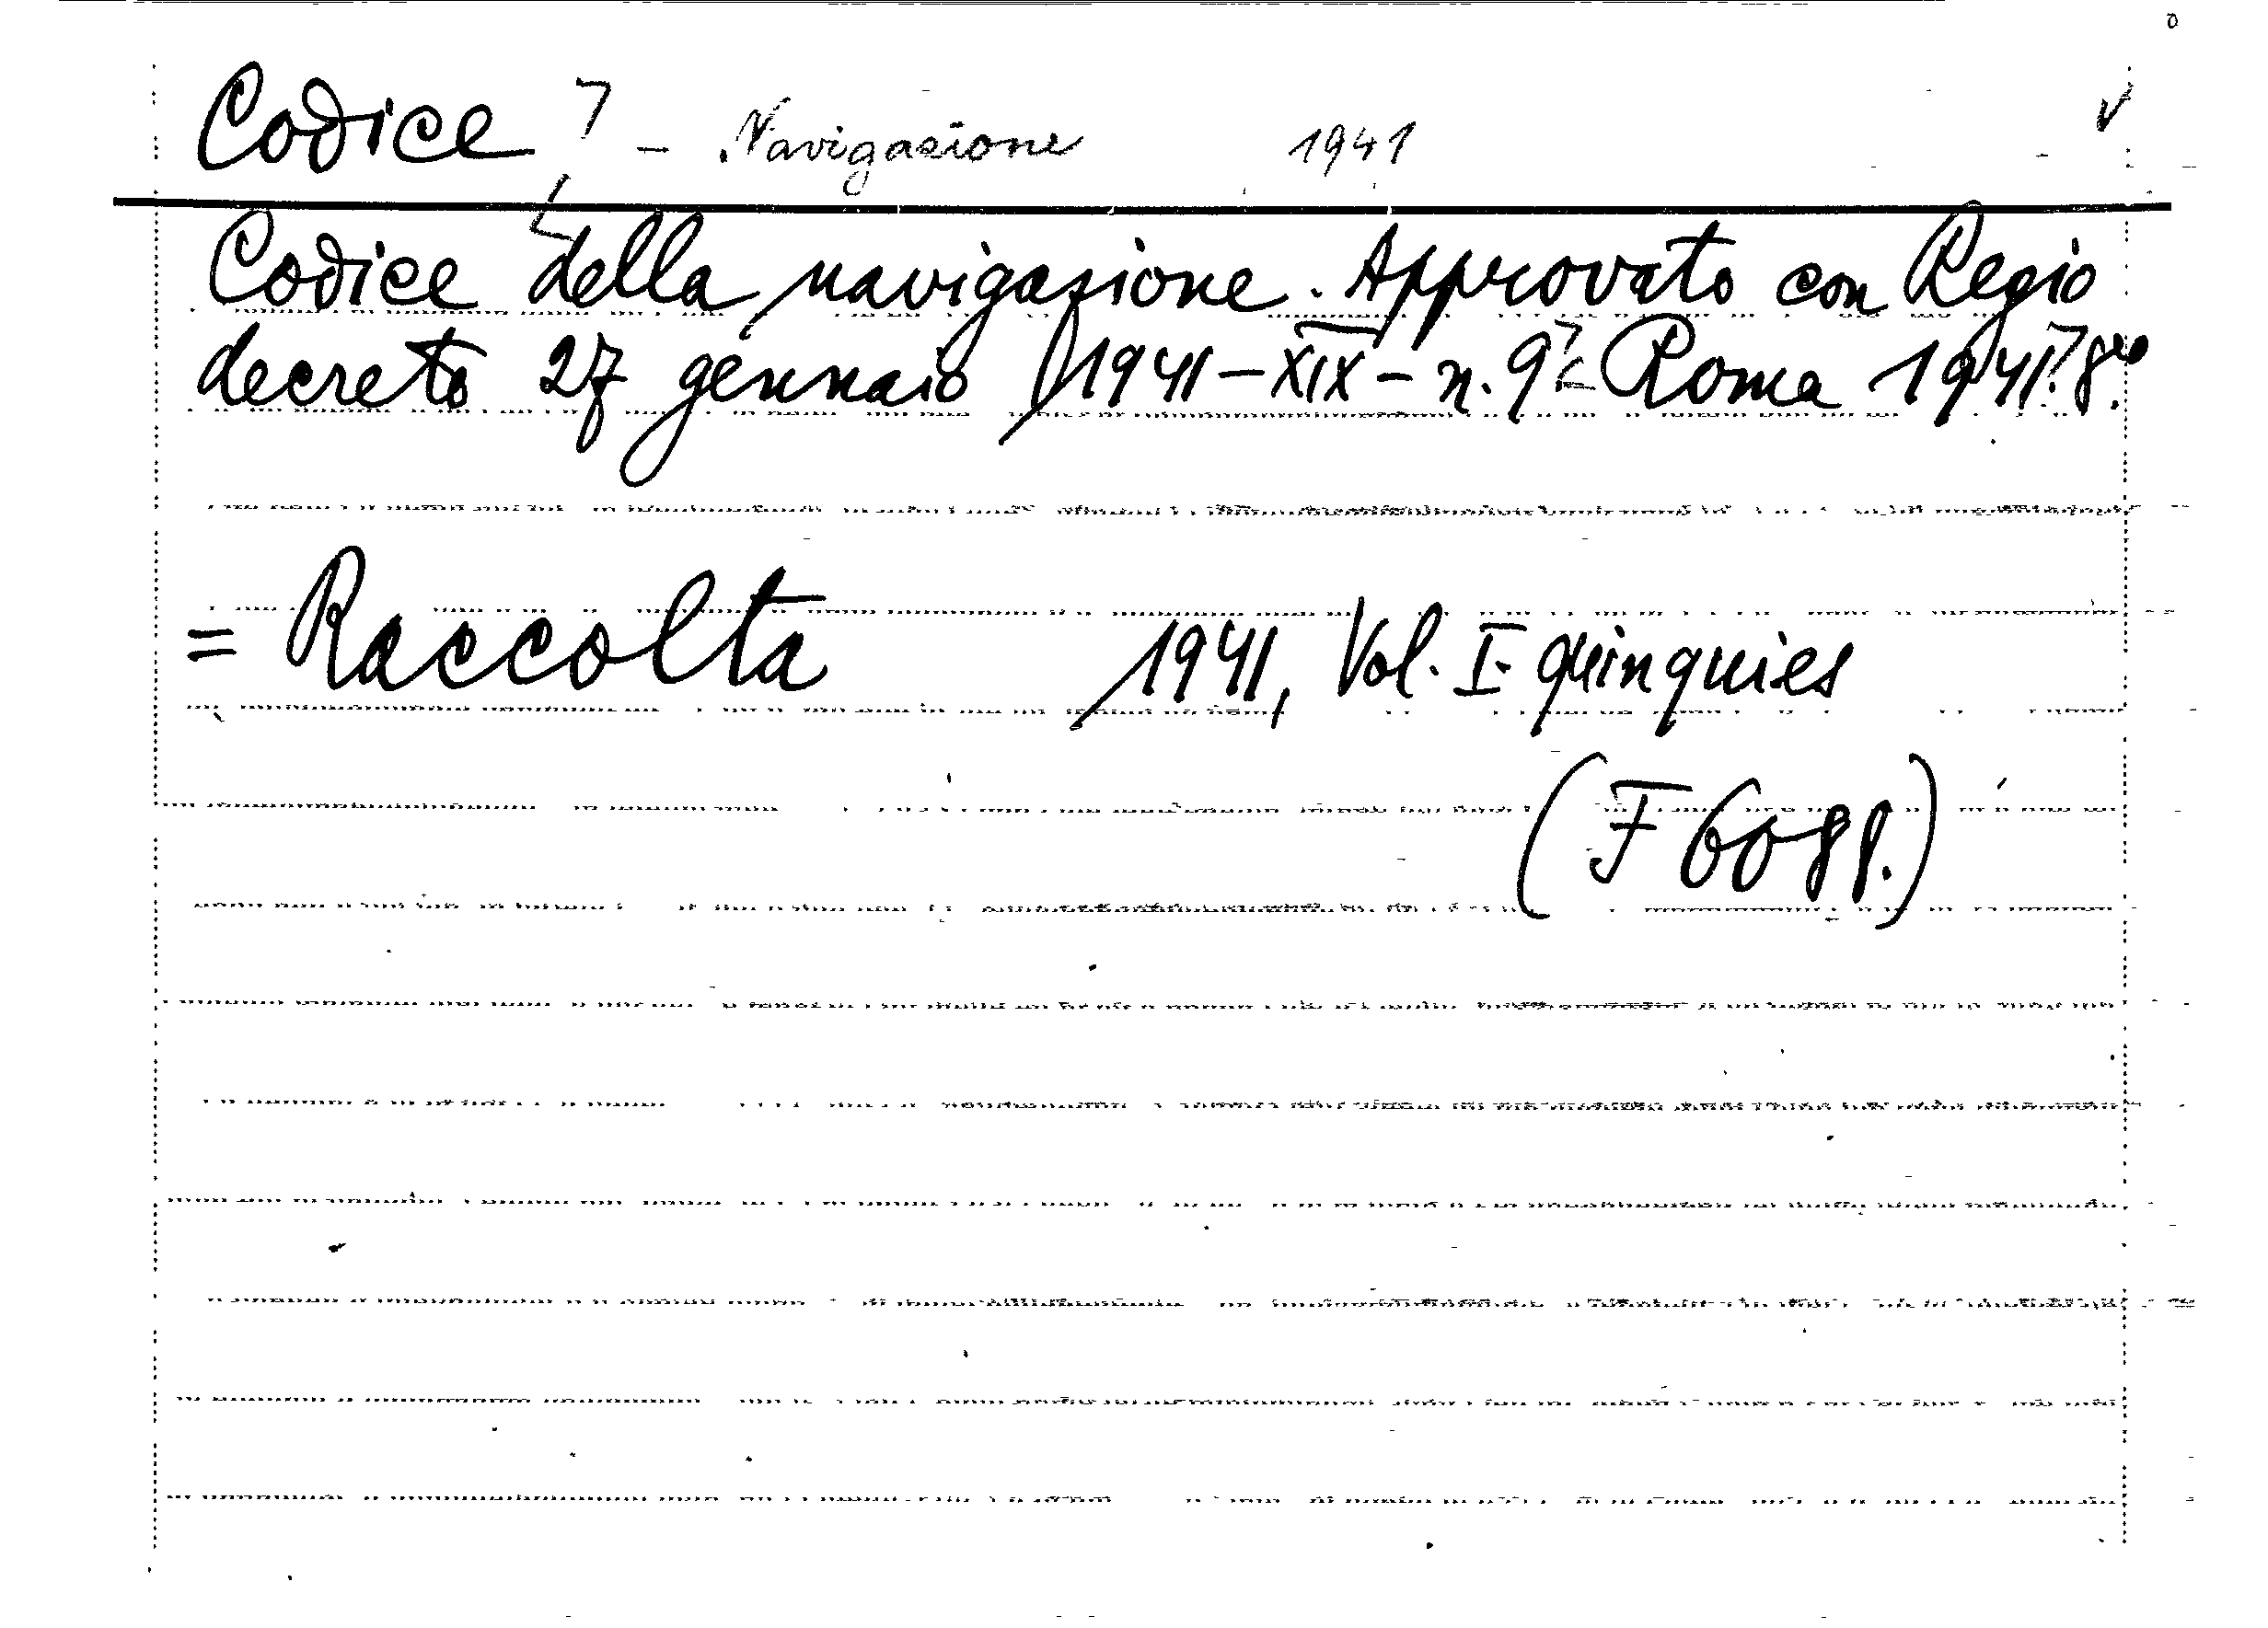 Codice - Navigazione 1941
Codice della navigazione. Approvato con Regio
decreto 27 gennaio 1941-XIX-n. 9. Roma 1941. 8vo.
= Raccolta 1941, Vol. I quinquies
(F